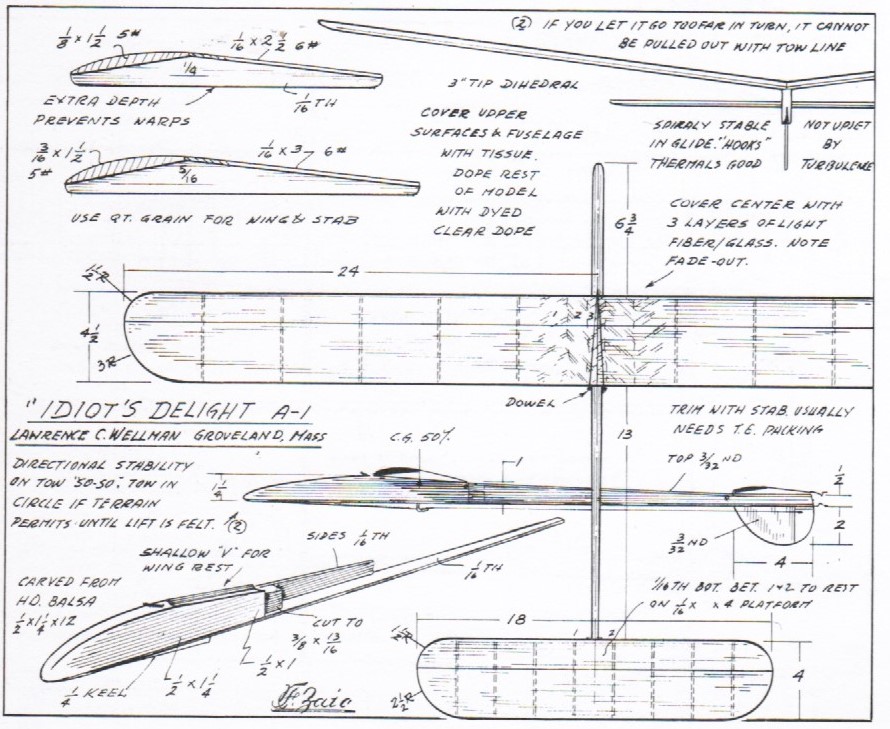 1/8 x 1 1/2 5#
1/16 x 2 1/2 6#
1/4
EXTRA DEPTH
PREVENTS WARPS
1/16 TH
3/16 x 1 1/2
5#
1/16 x 3 6#
5/16
USE QT. GRAIN FOR WING & STAB
3" TIP DIHEDRAL
COVER UPPER
SURFACES & FUSELAGE
WITH TISSUE.
DOPE REST
OF MODEL
WITH DYED
CLEAR DOPE
(2) IF YOU LET IT GO TOO FAR IN TURN, IT CANNOT
BE PULLED OUT WITH TOW LINE
SPIRALY STABLE
IN GLIDE. "HOOKS"
THERMALS GOOD
NOT UPSET
BY
TURBULENCE
6 3/4
COVER CENTER WITH
3 LAYERS OF LIGHT
FIBER/GLASS. NOTE
FADE-OUT.
1 1/2 R
24
4 1/2
3R
1 2 3
DOWEL
13
"IDIOT'S DELIGHT A-1
LAWRENCE C. WELLMAN GROVELAND, MASS
DIRECTIONAL STABILITY
ON TOW "50-50". TOW IN
CIRCLE IF TERRAIN
PERMITS UNTIL LIFT IS FELT. (2)
C.G. 50%
1 1/4
1
TRIM WITH STAB. USUALLY
NEEDS T.E. PACKING
TOP 3/32 ND
1/2
2
3/32 ND
4
SHALLOW "V" FOR
WING REST
SIDES 1/16 TH
1/16 TH
CARVED FROM
HD. BALSA
1/2 x 1 1/4 x 12
CUT TO
3/8 x 13/16
1/2 x 1
1/2 x 1 1/4
1/4 KEEL
F. Zaic
1/16TH BOT. BET. 1 & 2 TO REST
ON 1/16 x x 4 PLATFORM
18
1 2
4
2 1/2 R